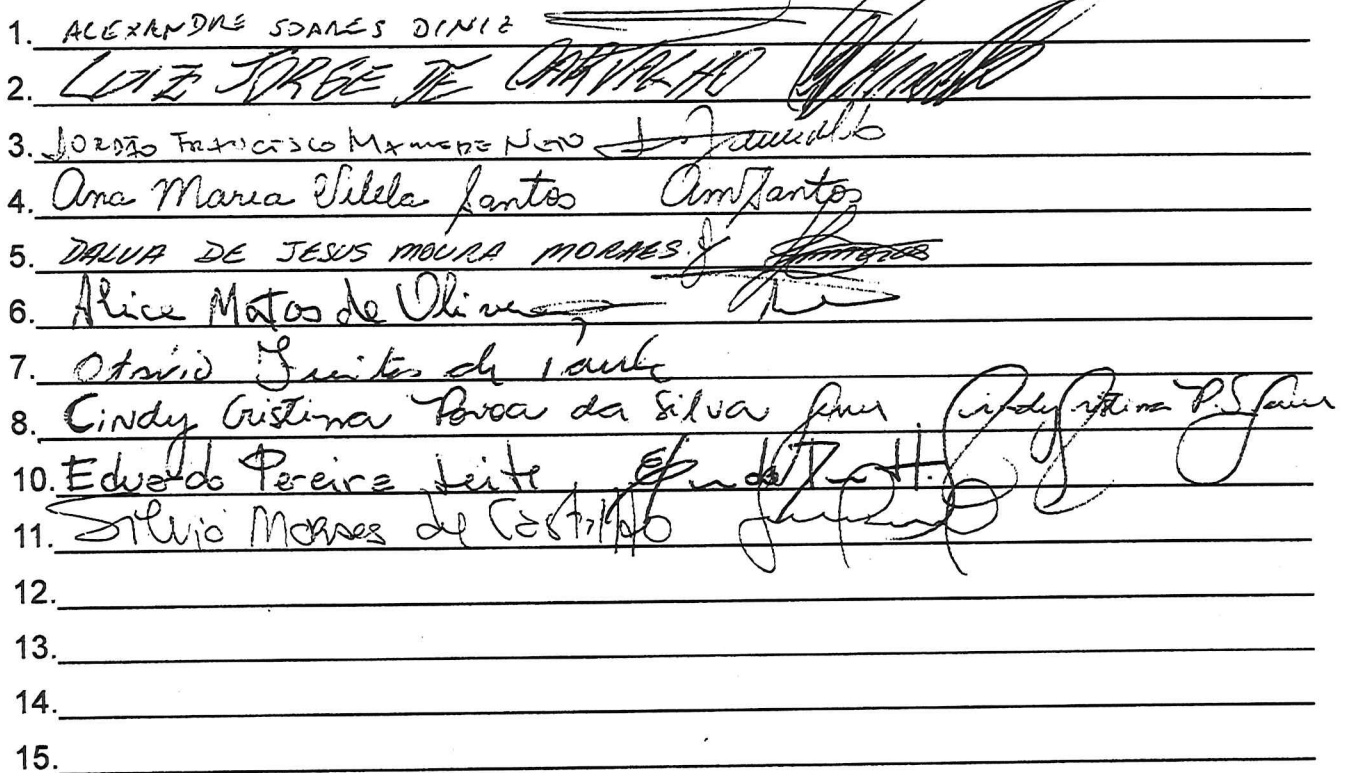 1. ALEXANDRE SOARES DINIZ
2. LUIZ JORGE DE CARVALHO
3. JORDÃO FRANCISCO MAMEDE NETO
4. Ana Maria Vilela Santos AmSantos
5. DALVA DE JESUS MOURA MORAES
6. Alice Matos de Oliveira
7. Otávio Freitas de
8. Cindy Cristina Povoa da Silva Cindy Cristina P. S.
10. Eduardo Pereira Leite
11. Silvio Moraes de Castilho
12.
13.
14.
15.